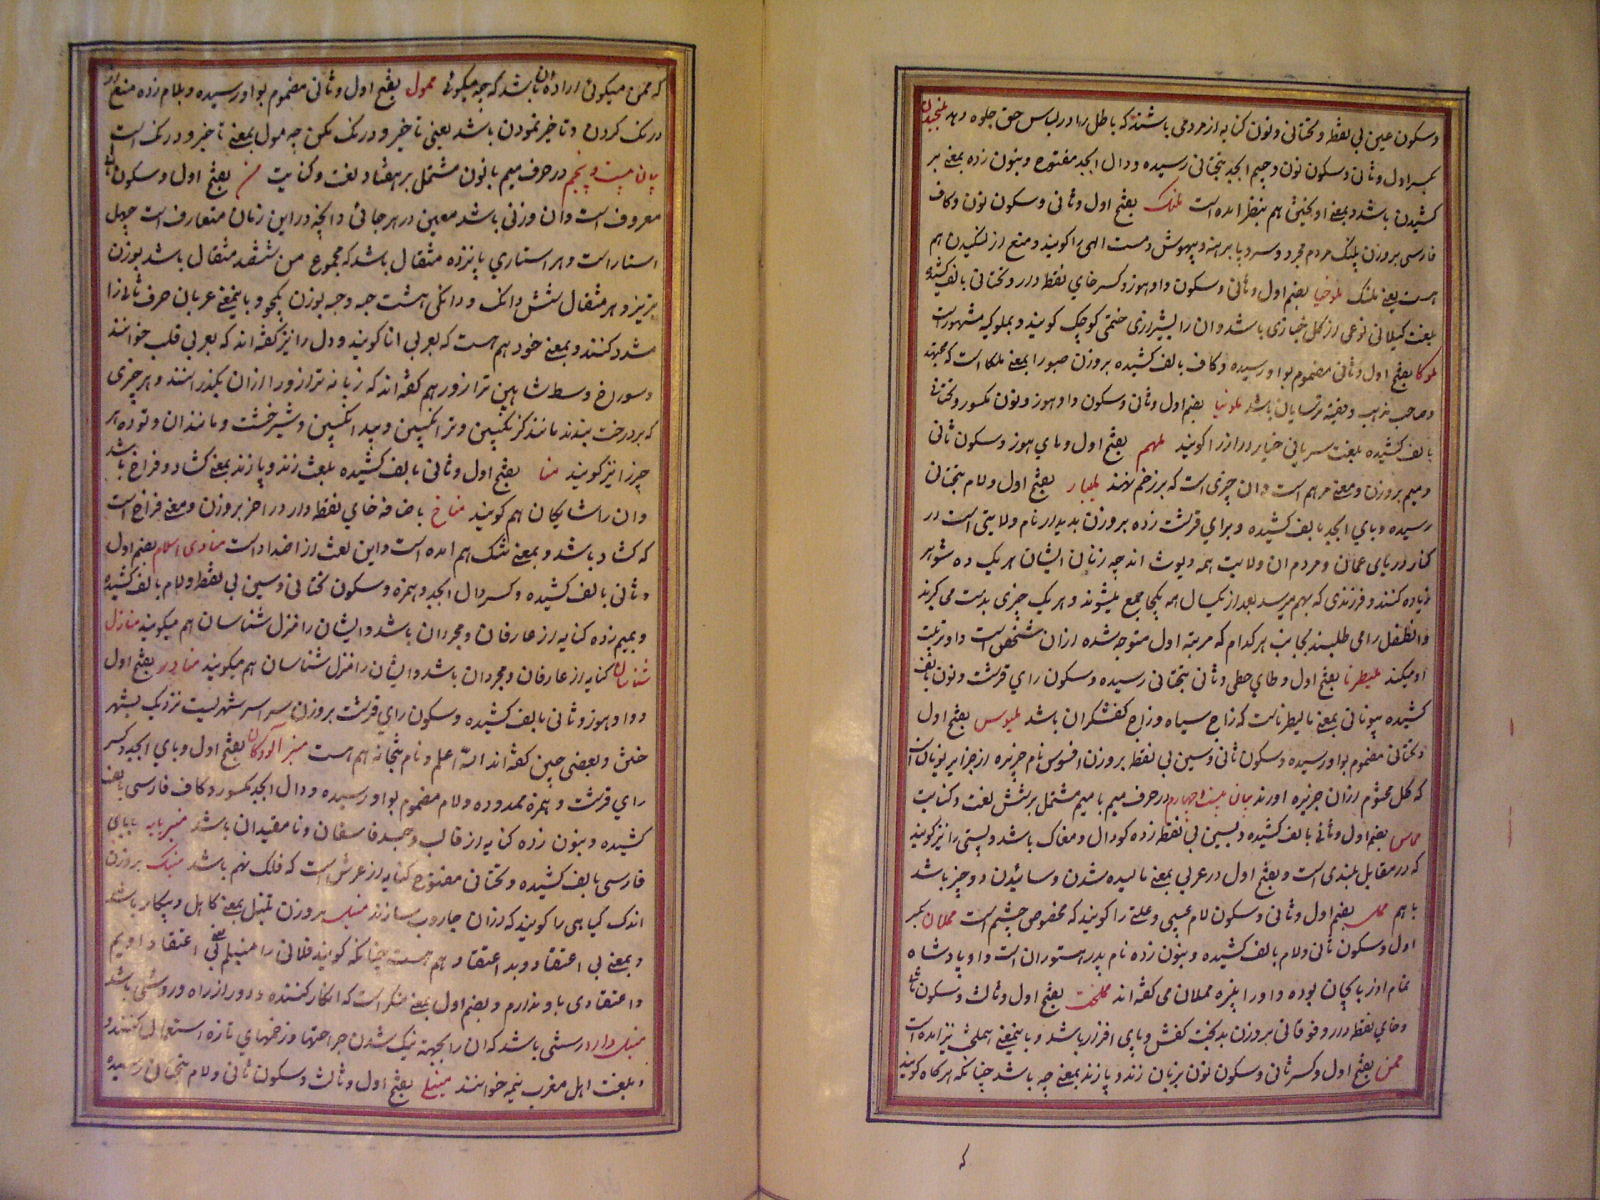 وسکون عین بی نقطه و تحتانی و نون کنایه از مردمی باشد که باطل را در لباس حق جلوه دهند ملنجیدن
بکسر اول و ثانی و سکون نون و جیم ابجد بتحتانی رسیده و دال ابجد مفتوح و بنون زده بمعنی بر
کشیدن باشد و بمعنی اویختن هم بنظر امده است ملنک بفتح اول و ثانی و سکون نون و کاف
فارسی بروزن پلنک مردم مجرد و سر و پا برهنه و بیهوش و مست الهی را کویند و منع از لنکیدن هم
هست یعنی ملنک ملوخیا بضم اول و ثانی و سکون واو هوز و کسر خای نقطه دار و تحتانی بالف کشیده
بلغت کیلانی نوعی از کل خبازی باشد و ان را بشیرازی خطمی کوچک کویند و بملوکیه مشهور است
ملوکا بفتح اول و ثانی مضموم بواو رسیده و کاف بالف کشیده بروزن صبورا بمعنی ملکا است که مجتهد
و صاحب مذهب و فقیه ترسایان باشد ملونیا بضم اول و ثانی و سکون واو هوز و نون مکسور و تحتانی
بالف کشیده بلغت سریانی خیار دراز را کویند ملهم بفتح اول و های هوز و سکون ثانی
و میم بروزن و معنی مرهم است و ان چیزی است که بر زخم نهند ملیبار بفتح اول و لام بتحتانی
رسیده و بای ابجد بالف کشیده و برای قرشت زده بروزن پدیدار نام ولایتی است در
کنار دریای عمان و مردم ان ولایت همه دیوث اند چه زنان ایشان هر یک ده شوهر
زیاده کنند و فرزندی که بهم میرسد بعد از یکسال همه یکجا جمع میشوند و هر یک چیزی بدست می کیرند
و انطفل را می طلبند بجانب هر کدام که مرتبه اول متوجه شد ه از ان شخص است و او تربیت
او میکند ملیطرنا بفتح اول و طای حطی و ثانی بتحتانی رسیده و سکون رای قرشت و نون بالف
کشیده بیونانی بمعنی مالیطرناست که زاج سیاه و زاج کفشکران باشد ملیوس بفتح اول
و تحتانی مضموم بواو رسیده و سکون ثانی و سین بی نقطه بروزن افسوس نام جزیره از جزایر یونان
که کل مختوم از ان جزیره اورند بیان بیست و چهارم در حرف میم با میم مشتمل بر شش لغت و کنایت
مماس بضم اول و ثانی بالف کشیده و بسین بی نقطه زده کودال و مغاک باشد و پستی را نیز کویند
که در مقابل بلندی است و بفتح اول در عربی بمعنی مالیده شدن و سائیدن دو چیز باشد
با هم ممل بضم اول و ثانی و سکون لام عیبی و علتی را کویند که مخصوص چشم است مملان بکسر
اول و سکون ثانی و لام بالف کشیده و بنون زده نام پدر هستوران است و او پادشاه
تمام اذربایجان بوده و او را اپیزه مملان می کفته اند مملخت بفتح اول و ثالث و سکون ثانی
و خای نقطه دار و فوقانی بروزن بدبخت کفش و پای افزار باشد و باینمعنی هملخت نیز امده است
ممن بفتح اول و کسر ثانی و سکون نون بزبان زند و پازند بمعنی چه باشد چنانکه هرکاه کویند
که
که ممن میکوئی اراده ان باشد که چه میکوئی ممول بفتح اول و ثانی مضموم بواو رسیده و بلام زده منع از
درنک کردن و تاخیر نمودن باشد یعنی تاخیر و درنک مکن چه مول بمعنی تاخیر و درنک است
بیان بیست و پنجم در حرف میم با نون مشتمل بر هفتاد لغت و کنایت من بفتح اول و سکون ثانی
معروف است و ان وزنی باشد معین در هر جائی و انچه در این زمان متعارف است چهل
استار است و هر استاری پانزده مثقال باشد که مجموع من ششصد مثقال باشد بوزن
تبریز و هر مثقال شش دانک و دانکی هشت حبه و حبه بوزن یکجو و باینمعنی عربان حرف ثانی را
مشدد کنند و بمعنی خود هم هست که بعربی انا کویند و دل را نیز کفته اند که بعربی قلب خوانند
و سوراخ وسط شاهین ترازو هم کفته اند که زبانه ترازو را از ان بکذرانند و هر چیزی
که بر درخت بندند مانند کزنکبین و ترانکبین و بید انکبین و شیرخشت و مانند ان و توده هر
چیز را نیز کویند منا بفتح اول و ثانی بالف کشیده بلغت زند و پازند بمعنی کشاد و فراخ باشد
وان را شایکان هم کویند مناخ باضافه خای نقطه دار در اخر بروزن و معنی فراخ است
که کشاد باشد و بمعنی تنک هم امده است و این لغت از اضداد است منادی اسلام بضم اول
و ثانی بالف کشیده و کسر دال ابجد و همزه و سکون تحتانی و سین بی نقطه و لام بالف کشیده
و بمیم زده کنایه از عارفان و مجردان باشد و ایشان را منزل شناسان هم میکویند منازل
شناسان کنایه از عارفان و مجردان باشد و ایشان را منزل شناسان هم میکویند مناور بفتح اول
و واو هوز و ثانی بالف کشیده و سکون رای قرشت بروزن سراسر شهریست نزدیک بشهر
ختن و بعضی چین کفته اند الله اعلم و نام بتخانه هم هست منبر آلودکان بفتح اول و بای ابجد و کسر
رای قرشت و همزه ممدوده و لام مضموم بواو رسیده و دال ابجد مکسور و کاف فارسی بالف
کشیده و بنون زده کنایه از قالب و جسد فاسقان و نامقیدان باشد منبر نه پایه ببای
فارسی بالف کشیده و تحتانی مفتوح کنایه از عرش است که فلک نهم باشد منبک بروزن
اندک کیاهی را کویند که از ان جاروب سازند منبل بروزن تنبل بمعنی کاهل و بیکار باشد
و بمعنی بی اعتقاد و بد اعتقاد هم هست چنانکه کویند فلانی را منبلم یعنی اعتقاد داریم
و اعتقادی باو ندارم و بضم اول بمعنی منکر است که انکار کننده و دور از راه و روشی باشد
منبل دارو رستنی باشد که ان را بجهته نیک شدن جراحتها و زخمهای تازه استعمال کنند و
و بلغت اهل مغرب نیمه خوانند منبلی بفتح اول و ثالث و سکون ثانی و لام بتحتانی رسیده